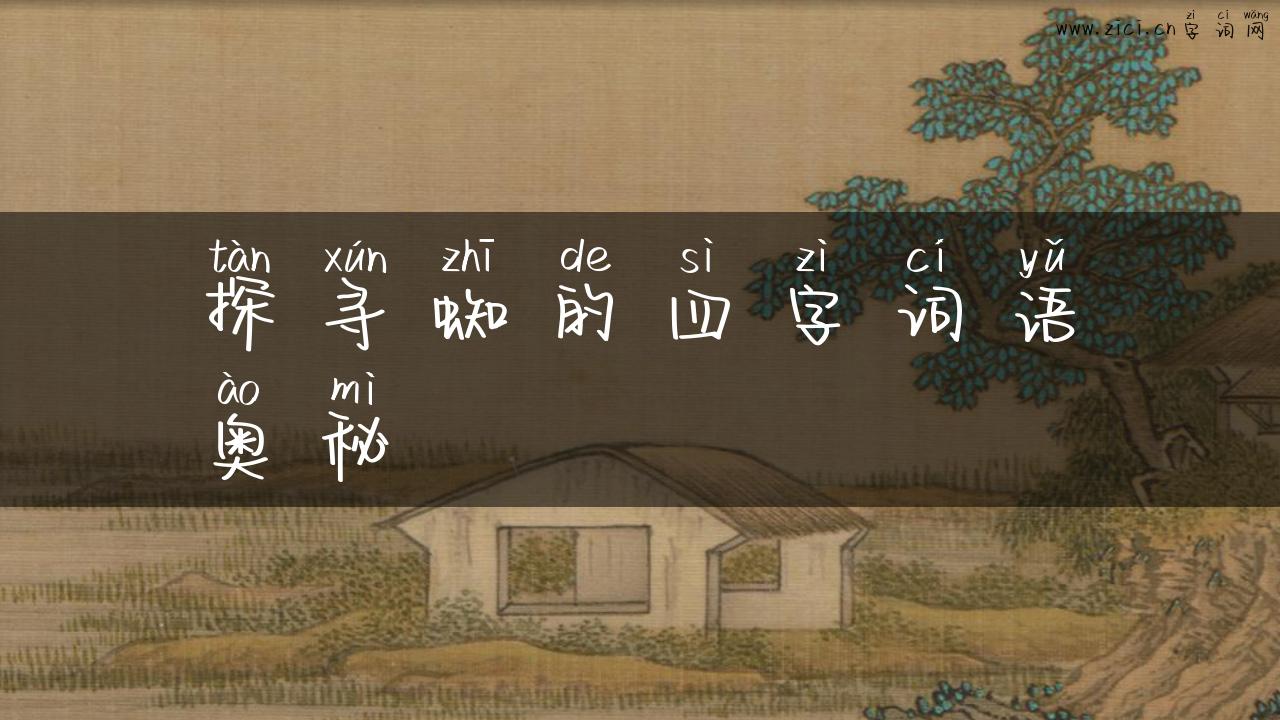 zì cí wǎng
www.zici.cn 字词网
tàn xún zhī de sì zì cí yǔ
探寻蜘的四字词语
ào mì
奥秘